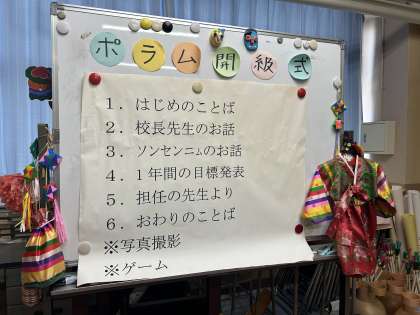 ポラム開級式
1．はじめのことば
2．校長先生のお話
3．ソンセンニムのお話
4．1年間の目標発表
5．担任の先生より
6．おわりのことば
※写真撮影
※ゲーム